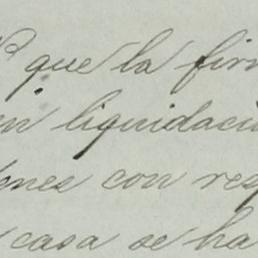 que la fir
en liquidaci
ones con res
casa se ha